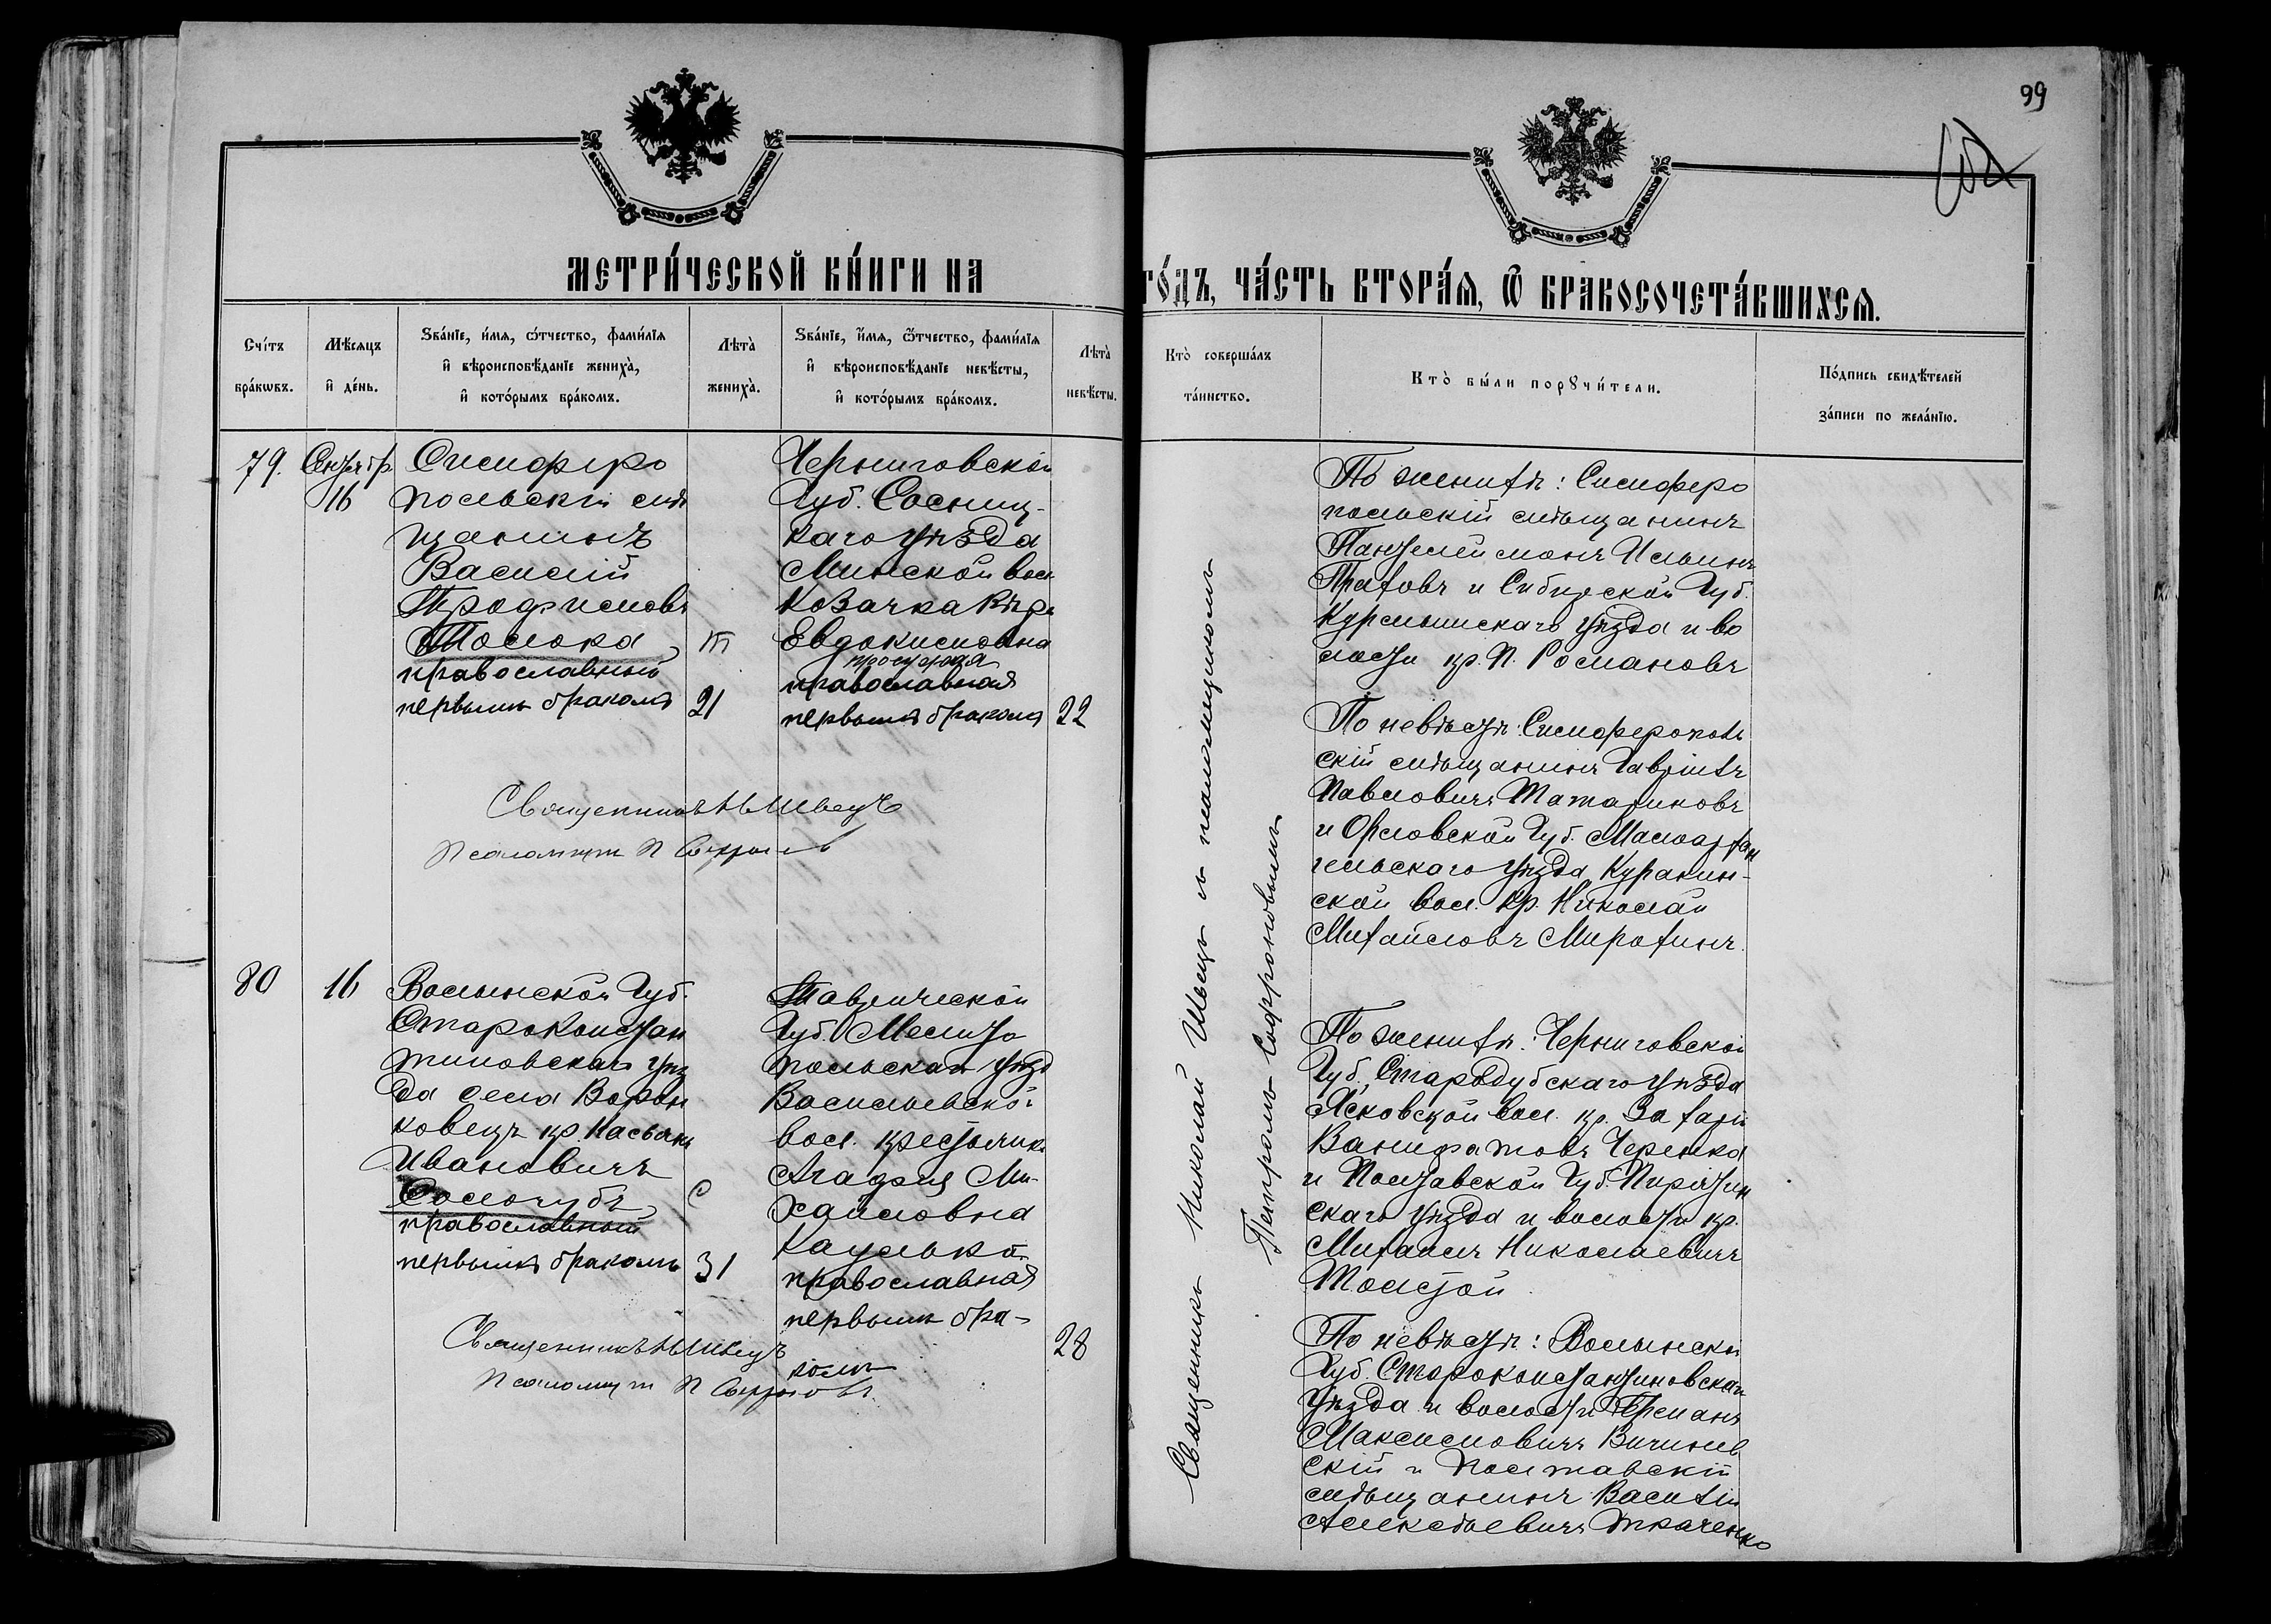 99
МЕТРИ́ЧЕСКОЙ КНИ́ГИ НА
ГО́ДЪ, ЧА́СТЬ ВТОРА́Я, Ѿ БРАКОСОЧЕТА́ВШИХСЯ.
Сче́тъ бра́кѡвъ.
Мѣ́сяцъ и҆ де́нь.
Зва́нїе, и́мя, ѻ́тчество, фами́лїя
и҆ вѣроисповѣ́данїе жениха̀,
и҆ кото́рымъ бра́комъ.
Лѣта̀ жениха̀.
Зва́нїе, и́мя, ѻ́тчество, фами́лїя
и҆ вѣроисповѣ́данїе невѣ́сты,
и҆ кото́рымъ бра́комъ.
Лѣта̀ невѣ́сты.
Кто̀ соверша́лъ та́инство.
Кто̀ бы́ли порꙋчи́тели.
По́дпись свидѣ́телей
за́писи по жела́нїю.
79.
Сентябр
16
Симферо
польскій мѣ
щанинъ
Василій
Трофимовъ
Толока
православный
первымъ бракомъ
Т
21
Черниговской
Губ. Сосниц-
каго уѣзда
Минской вол.
козачка Вѣра
Евдокимовна
православная
первымъ бракомъ
22
Священникъ Н Швецъ
Псаломщик П Софронов
Священникъ Николай Швецъ и псаломщикомъ
Петромъ Софроновымъ
По женихѣ: Симферо
польскій мѣщанинъ
Пантелеймонъ Ильинъ
и Симбирской Губ.
Курмышскаго уѣзда и во
лости кр. П. Романовъ
По невѣстѣ: Симферополь
скій мѣщанинъ Гавріилъ
Павловичъ Татариновъ
и Орловской Губ. Малоархан
гельскаго уѣзда, Куракин-
ской вол. кр. Николай
Михайловъ Мирохинъ
80
16
Волынской Губ.
Староконстан
тиновскаго уѣз
да села Ворон
ковецъ кр. Касьянъ
Ивановичъ
Солочубъ
православный
первымъ бракомъ
С
31
Таврической
Губ. Мелито
польскаго уѣзд
Васильевской
вол. крестьянка
Агафія Ми-
хайловна
православная
первымъ бра-
комъ
28
Священникъ Н Швецъ
Псаломщик П Софронов
По женихѣ: Черниговской
Губ. Стародубскаго уѣзда
Асковской вол. кр. Захарій
Ванифатовъ Черенко
и Полтавской Губ. Пирятин
скаго уѣзда и волости кр.
Михаилъ Николаевичъ
Толстой
По невѣстѣ: Волынской
Губ. Староконстантиновскаго
уѣзда и волости Германъ
Максимовичъ
скій и Полтавскій
мѣщанинъ Василій
Алексѣевичъ Ткаченко